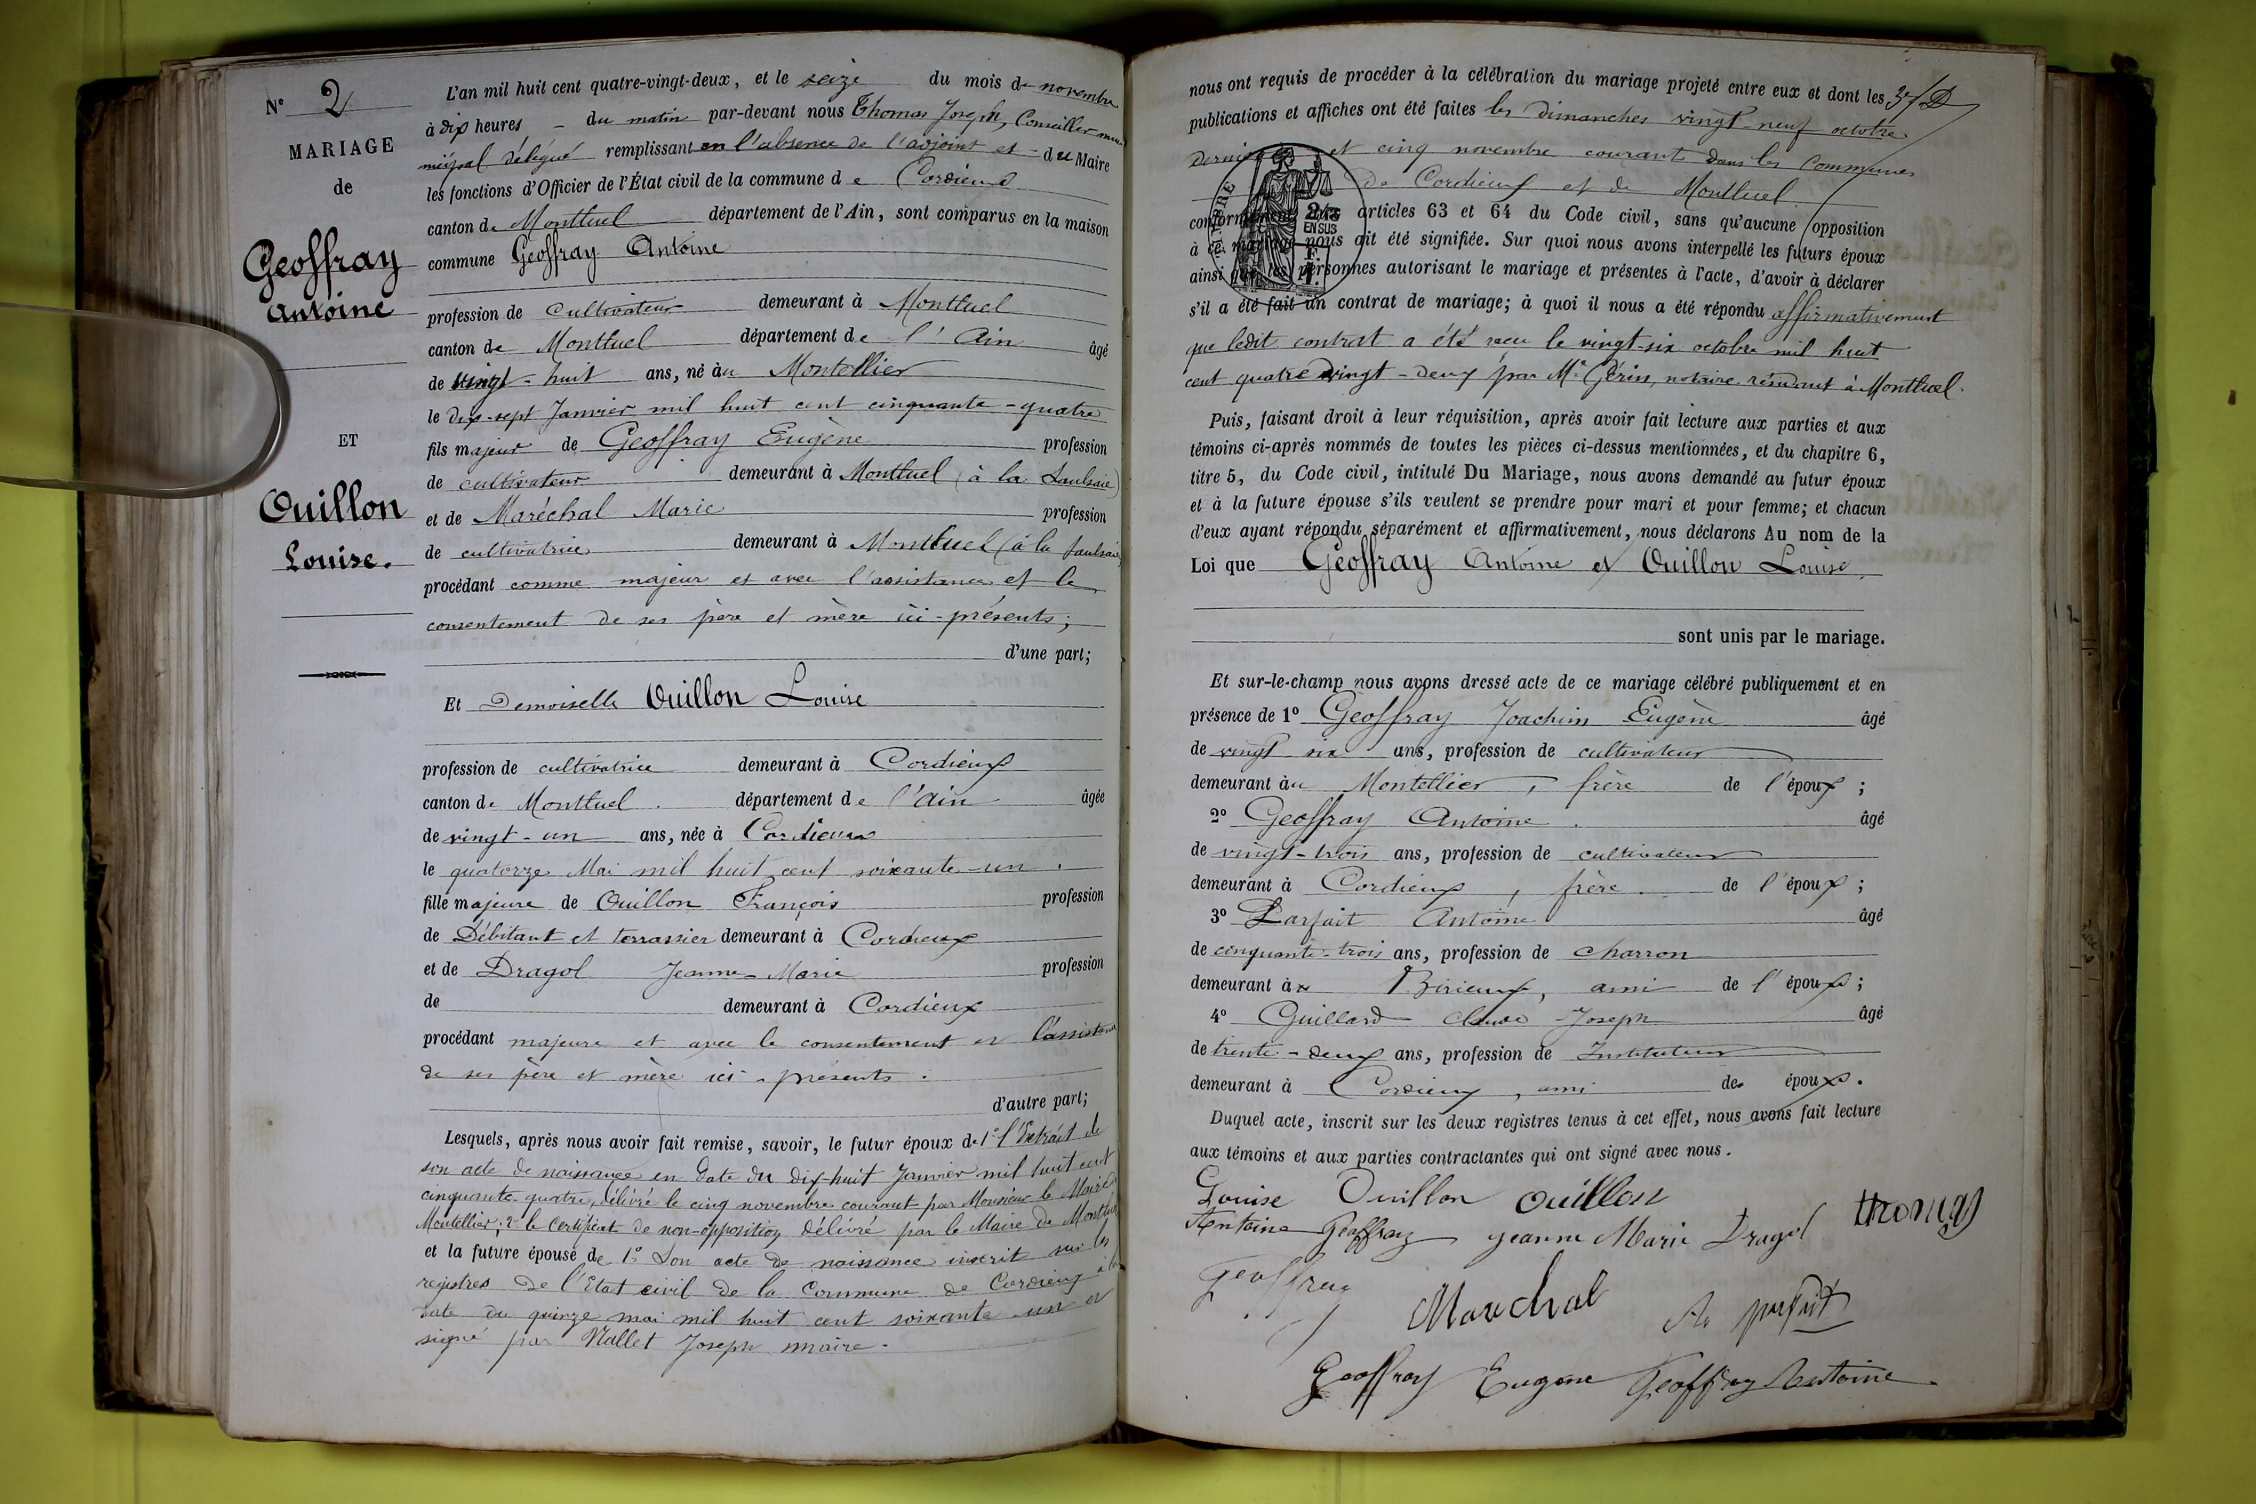 N° 2
MARIAGE
de
Geoffray
Antoine
ET
Ouillon
Louise.
L'an mil huit cent quatre-vingt-deux, et le seize du mois de novembre
à dix heures - du matin par-devant nous Thomas Joseph, Conseiller mu-
nicipal délégué remplissant en l'absence de l'adjoint et - du Maire
les fonctions d'Officier de l'État civil de la commune de Cordieux
canton de Montluel département de l'Ain, sont comparus en la maison
commune Geoffray Antoine
profession de cultivateur demeurant à Montluel
canton de Montluel département de l'Ain âgé
de vingt-huit ans, né au Montellier
le dix-sept Janvier mil huit cent cinquante-quatre
fils majeur de Geoffray Eugène profession
de cultivateur demeurant à Montluel (à la Saulsaie)
et de Maréchal Marie profession
de cultivatrice demeurant à Montluel (à la Saulsaie)
procédant comme majeur et avec l'assistance et le
consentement de ses père et mère ici-présents;
d'une part;
Et Demoiselle Ouillon Louise
profession de cultivatrice demeurant à Cordieux
canton de Montluel. département de l'Ain âgée
de vingt-un ans, née à Cordieux
le quatorze Mai mil huit cent soixante-un.
fille majeure de Ouillon François profession
de Débitant et terrassier demeurant à Cordieux
et de Dragol Jeanne-Marie profession
de demeurant à Cordieux
procédant majeure et avec le consentement et l'assistance
de ses père et mère ici-présents.
d'autre part;
Lesquels, après nous avoir fait remise, savoir, le futur époux de 1° l'Extrait de
son acte de naissance en date du dix-huit Janvier mil huit cent
cinquante-quatre, délivré le cinq novembre courant par Monsieur le Maire
Montellier; 2° le Certificat de non-opposition délivré par le Maire de Montluel
et la future épouse de 1° Son acte de naissance inscrit sur les
registres de l'Etat civil de la Commune de Cordieux à la
date du quinze mai mil huit cent soixante-un et
signé par Nallet Joseph maire.
3e/D
nous ont requis de procéder à la célébration du mariage projeté entre eux et dont les
publications et affiches ont été faites les dimanches vingt-neuf octobre
dernier et cinq novembre courant dans les Communes
de Cordieux et de Montluel.
conformément aux articles 63 et 64 du Code civil, sans qu'aucune opposition
à ce mariage nous ait été signifiée. Sur quoi nous avons interpellé les futurs époux
ainsi que les personnes autorisant le mariage et présentes à l'acte, d'avoir à déclarer
s'il a été fait un contrat de mariage; à quoi il nous a été répondu affirmativement
que ledit contrat a été reçu le vingt-six octobre mil huit
cent quatre vingt-deux par Me Gérin, notaire résidant à Montluel.
2/10
EN SUS
Puis, faisant droit à leur réquisition, après avoir fait lecture aux parties et aux
témoins ci-après nommés de toutes les pièces ci-dessus mentionnées, et du chapitre 6,
titre 5, du Code civil, intitulé Du Mariage, nous avons demandé au futur époux
et à la future épouse s'ils veulent se prendre pour mari et pour femme; et chacun
d'eux ayant répondu séparément et affirmativement, nous déclarons Au nom de la
Loi que Geoffray Antoine et Ouillon Louise,
sont unis par le mariage.
Et sur-le-champ nous avons dressé acte de ce mariage célébré publiquement et en
présence de 1° Geoffray Joachim Eugène âgé
de vingt six ans, profession de cultivateur
demeurant au Montellier, frère de l'époux;
2° Geoffray Antoine. âgé
de vingt-trois ans, profession de cultivateur
demeurant à Cordieux, frère de l'époux;
3° Parfait Antoine âgé
de cinquante-trois ans, profession de charron
demeurant à Birieux, ami de l'époux;
4° Guillard Claude Joseph âgé
de trente-deux ans, profession de Instituteur
demeurant à Cordieux, ami des époux.
Duquel acte, inscrit sur les deux registres tenus à cet effet, nous avons fait lecture
aux témoins et aux parties contractantes qui ont signé avec nous.
Louise Ouillon Ouillon thomas
Antoine Geoffray Jeanne Marie Dragol
Geoffray
Marechal An parfait
Geoffray Eugene Geoffray Antoine